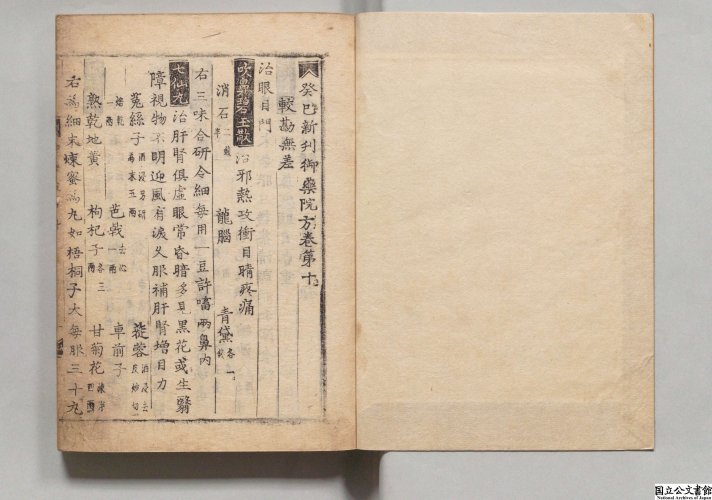 癸巳新刊御藥院方卷第十
較勘無差
治眼目門
吹鼻碧玉散 治邪熱攻衝目睛疼痛
消石 龍腦 青黛各一
右三味合研令細每用一豆許㗜兩鼻內
七仙丸 治肝腎俱虛眼常昏暗多見黑花或生翳
障視物不明迎風有淚久服補肝腎增目力
菟絲子酒浸另研為末五兩 巴戟去心一兩 蓯蓉酒浸去皮炒切
焙乾一兩 車前子
熟乾地黃 枸杞子各三兩 甘菊花揀淨四兩
右為細末煉蜜為丸如梧桐子大每服三十丸
国立公文書館
National Archives of Japan